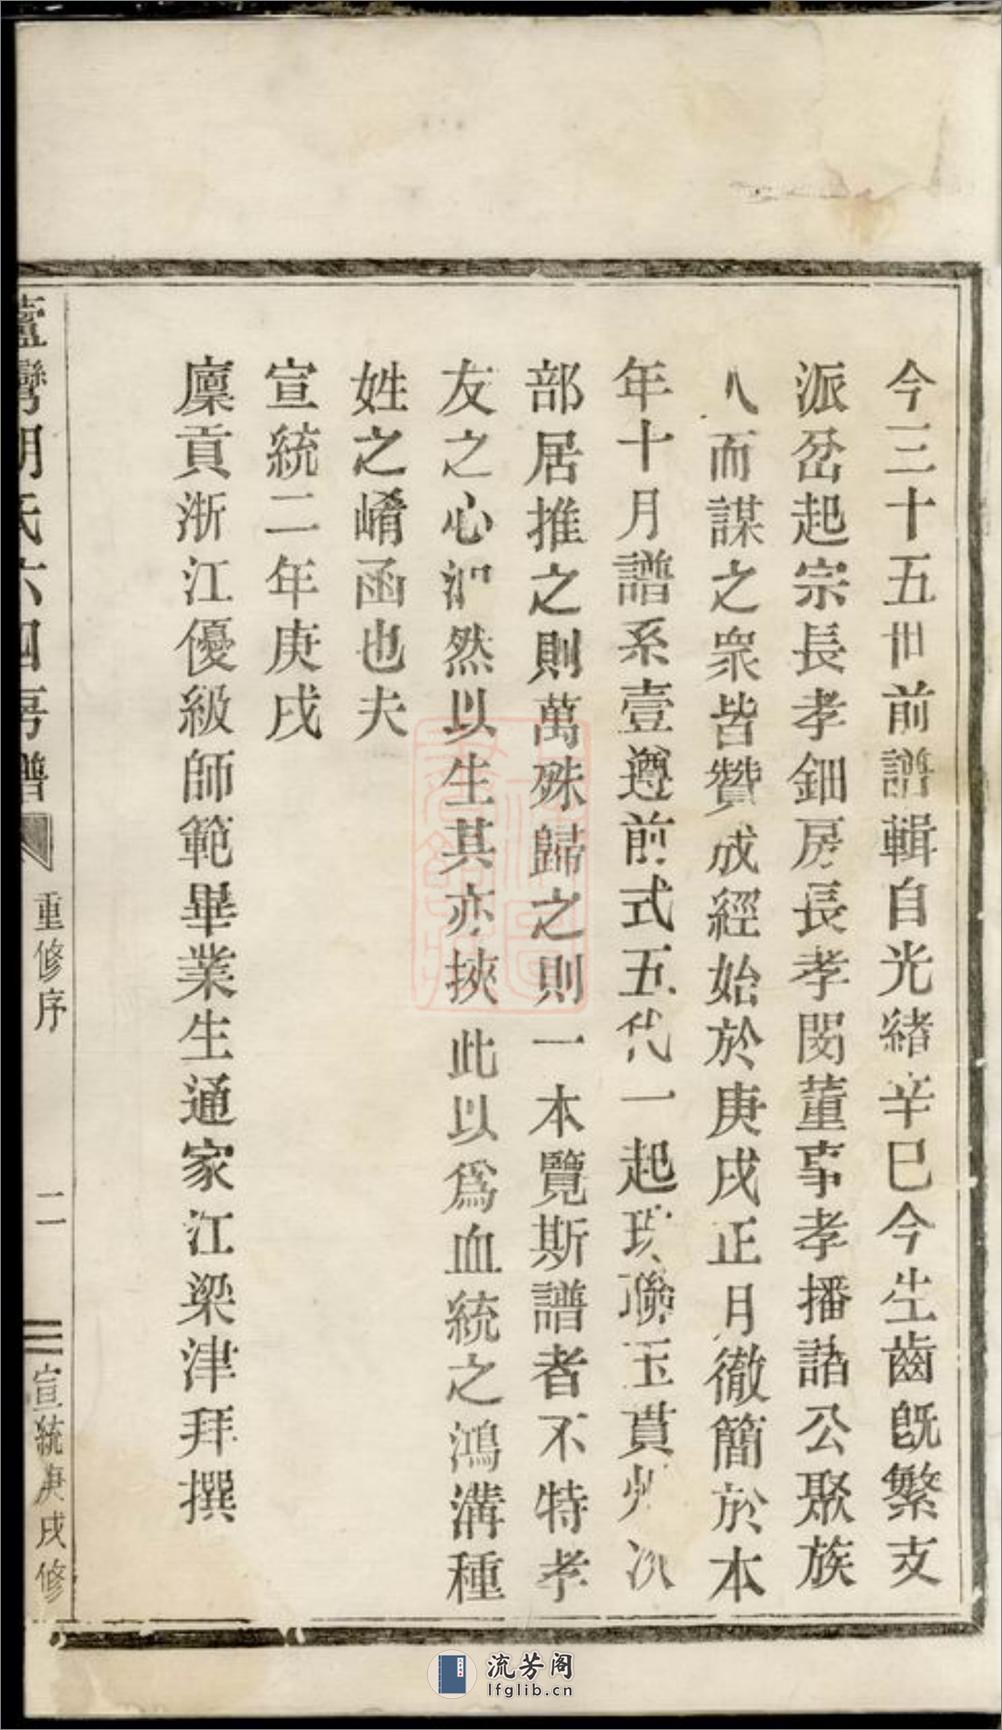 今三十五世前譜輯自光緒辛巳今生齒既繁支
派岔起宗長孝鈿房長孝閔董事孝播諸公聚族
人而謀之衆皆贊成經始於庚戌正月徹簡於本
年十月譜系壹遵前式五代一起珠聯玉貫州次
部居推之則萬殊歸之則一本覽斯譜者不特孝
友之心油然以生其亦挾此以爲血統之鴻溝種
姓之崤函也夫
宣統二年庚戌
廩貢浙江優級師範畢業生通家江梁津拜撰
胡氏六四房譜
重修序
二
宣統庚戌修
流芳阁
lfglib.cn